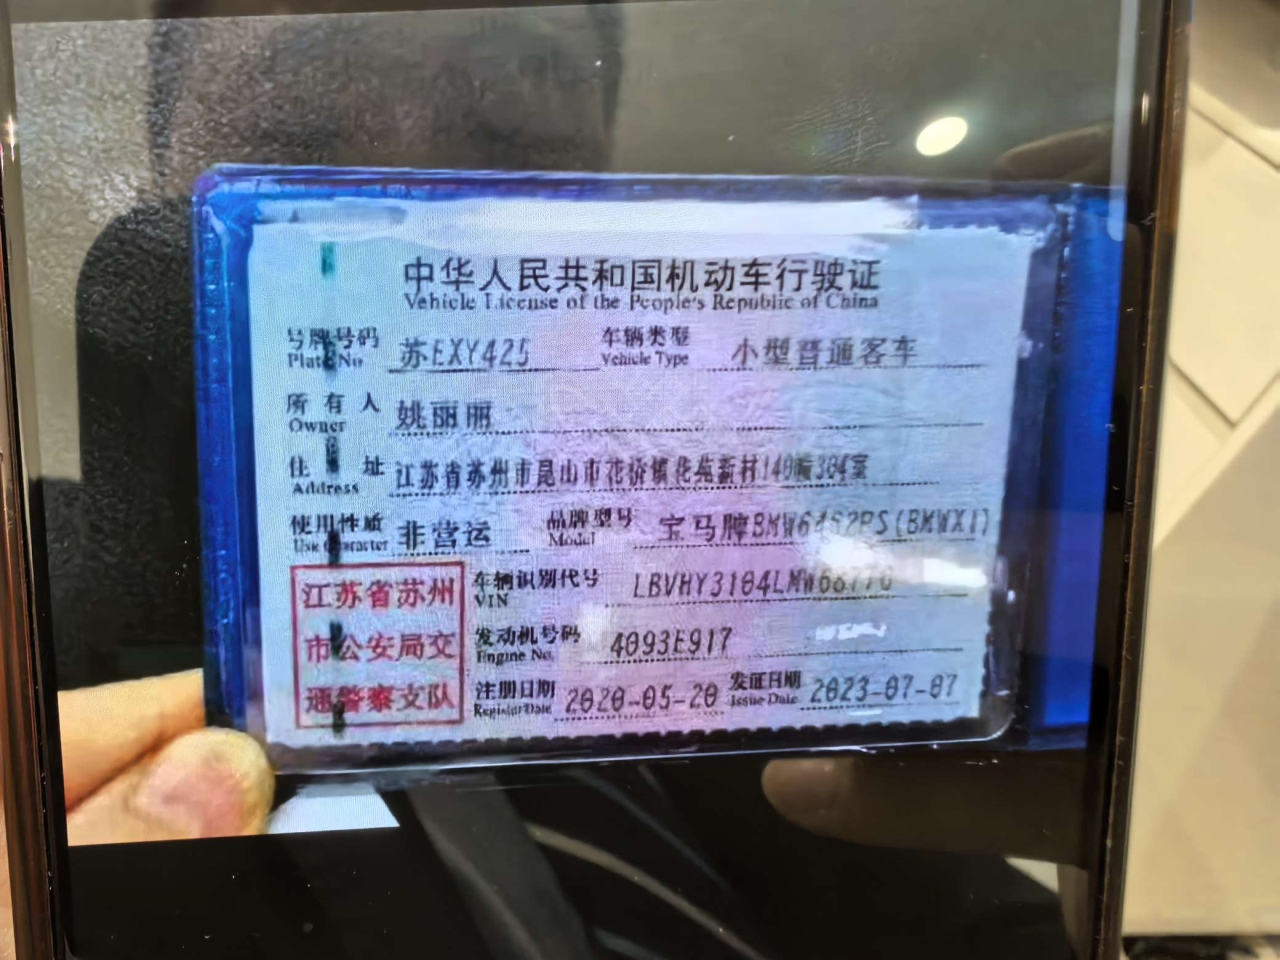 中华人民共和国机动车行驶证
Vehicle License of the People's Republic of China
号牌号码 苏EXY425 车辆类型 小型普通客车
Plate No. Vehicle Type
所有人 姚丽丽
Owner
住址 江苏省苏州市昆山市花桥镇花苑新村140幢304室
Address
使用性质 非营运 品牌型号 宝马牌 (BMWX1)
Use Character Model
江苏省苏州
市公安局交
通警察支队
车辆识别代号
VIN
发动机号码 4093E917
Engine No.
注册日期 2020-05-20 发证日期 2023-07-07
Register Date Issue Date